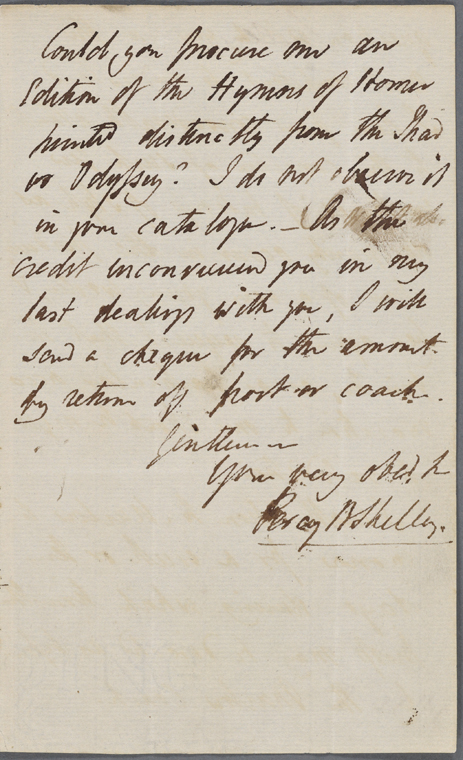 Could you procure me an
Edition of the Hymns of Homer
printed distinctly from the Iliad
or Odyssey? I do not observe it
in your catalogue. — As the
credit inconvenienced you in my
last dealings with you, I will
send a cheque for the amount
by return of post or coach.
Gentlemen
Your very obed. Sr
Percy B Shelley.